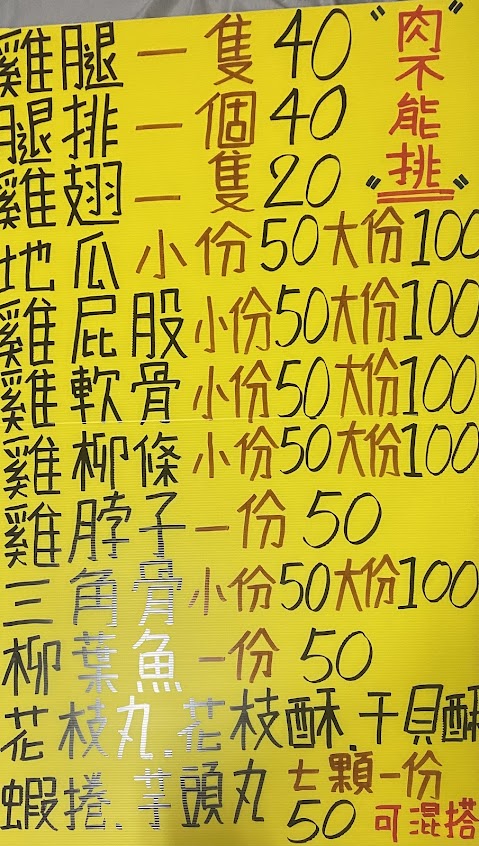 雞腿一隻40
腿排一個40
雞翅一隻20
"肉不能挑"
地瓜小份50大份100
雞屁股小份50大份100
雞軟骨小份50大份100
雞柳條小份50大份100
雞脖子一份50
三角骨小份50大份100
柳葉魚一份50
花枝丸、花枝酥、干貝酥
蝦捲、芋頭丸 七顆一份50 可混搭